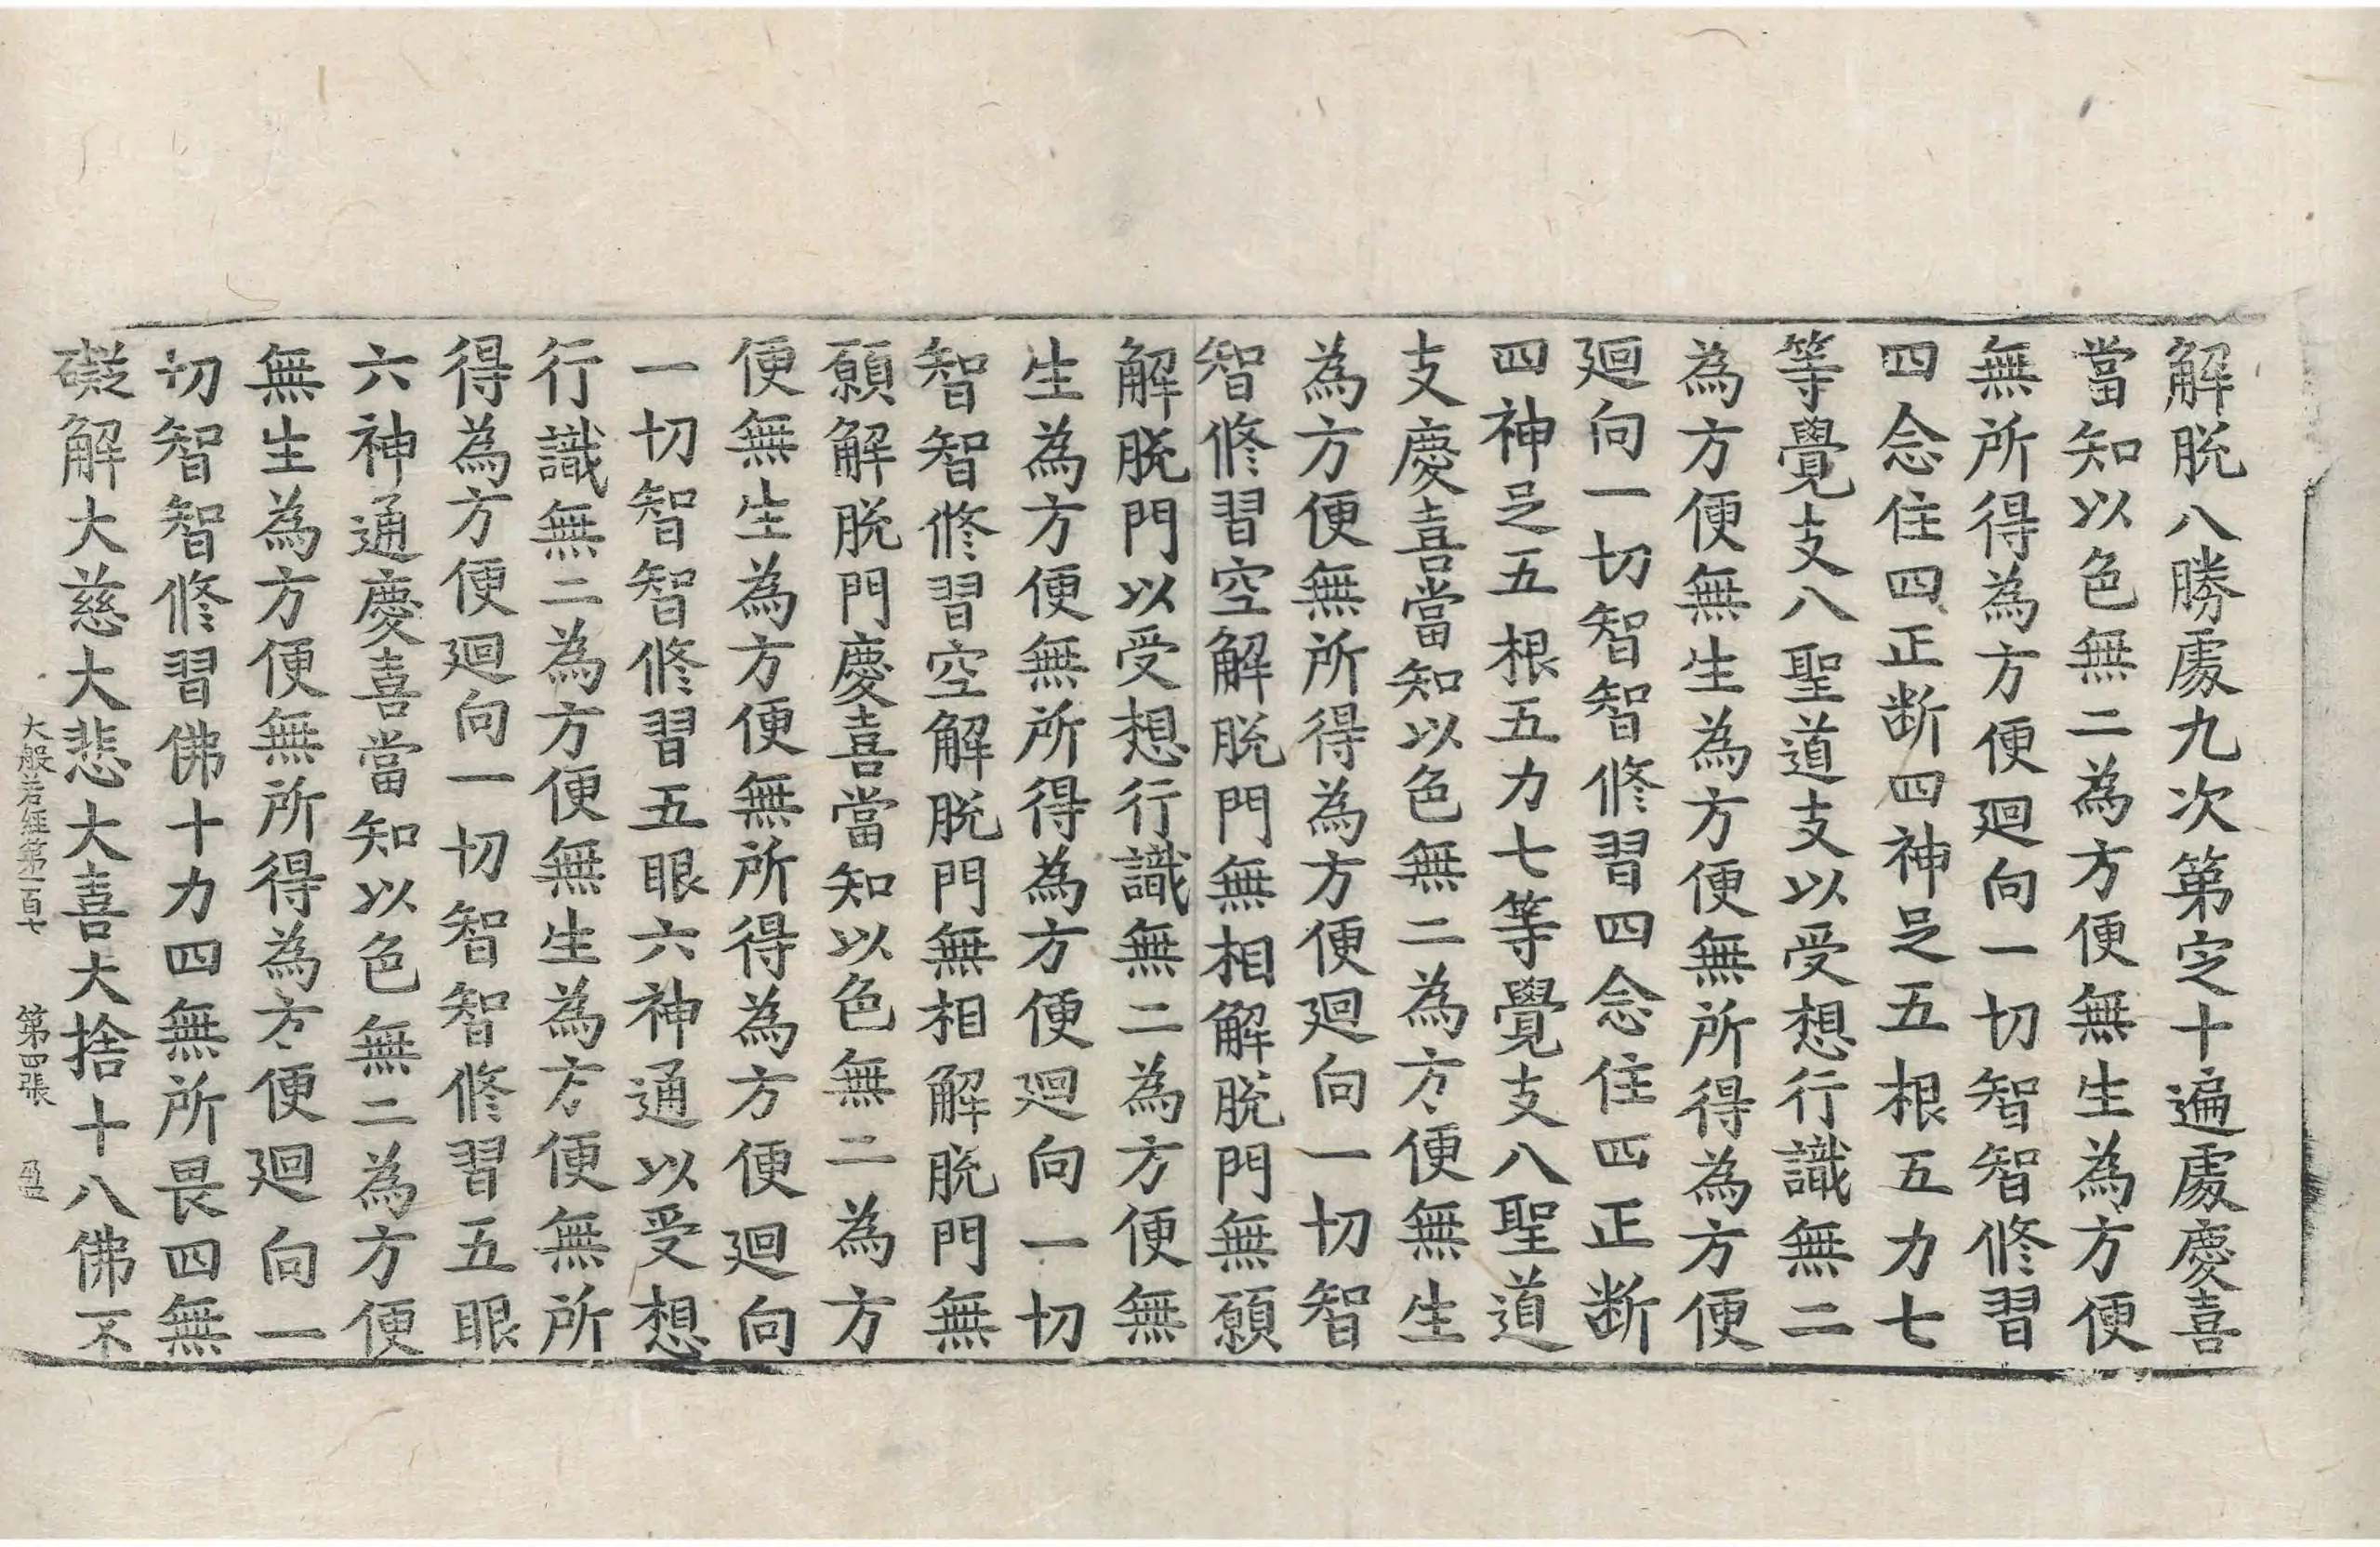 解脫八勝處九次第定十遍處慶喜
當知以色無二為方便無生為方便
無所得為方便迴向一切智智修習
四念住四正断四神足五根五力七
等覺支八聖道支以受想行識無二
為方便無生為方便無所得為方便
迴向一切智智修習四念住四正断
四神足五根五力七等覺支八聖道
支慶喜當知以色無二為方便無生
為方便無所得為方便迴向一切智
智修習空解脫門無相解脫門無願
解脫門以受想行識無二為方便無
生為方便無所得為方便迴向一切
智智修習空解脫門無相解脫門無
願解脫門慶喜當知以色無二為方
便無生為方便無所得為方便迴向
一切智智修習五眼六神通以受想
行識無二為方便無生為方便無所
得為方便迴向一切智智修習五眼
六神通慶喜當知以色無二為方便
無生為方便無所得為方便迴向一
切智智修習佛十力四無所畏四無
礙解大慈大悲大喜大捨十八佛不
大般若經第一百七 第四張 盈